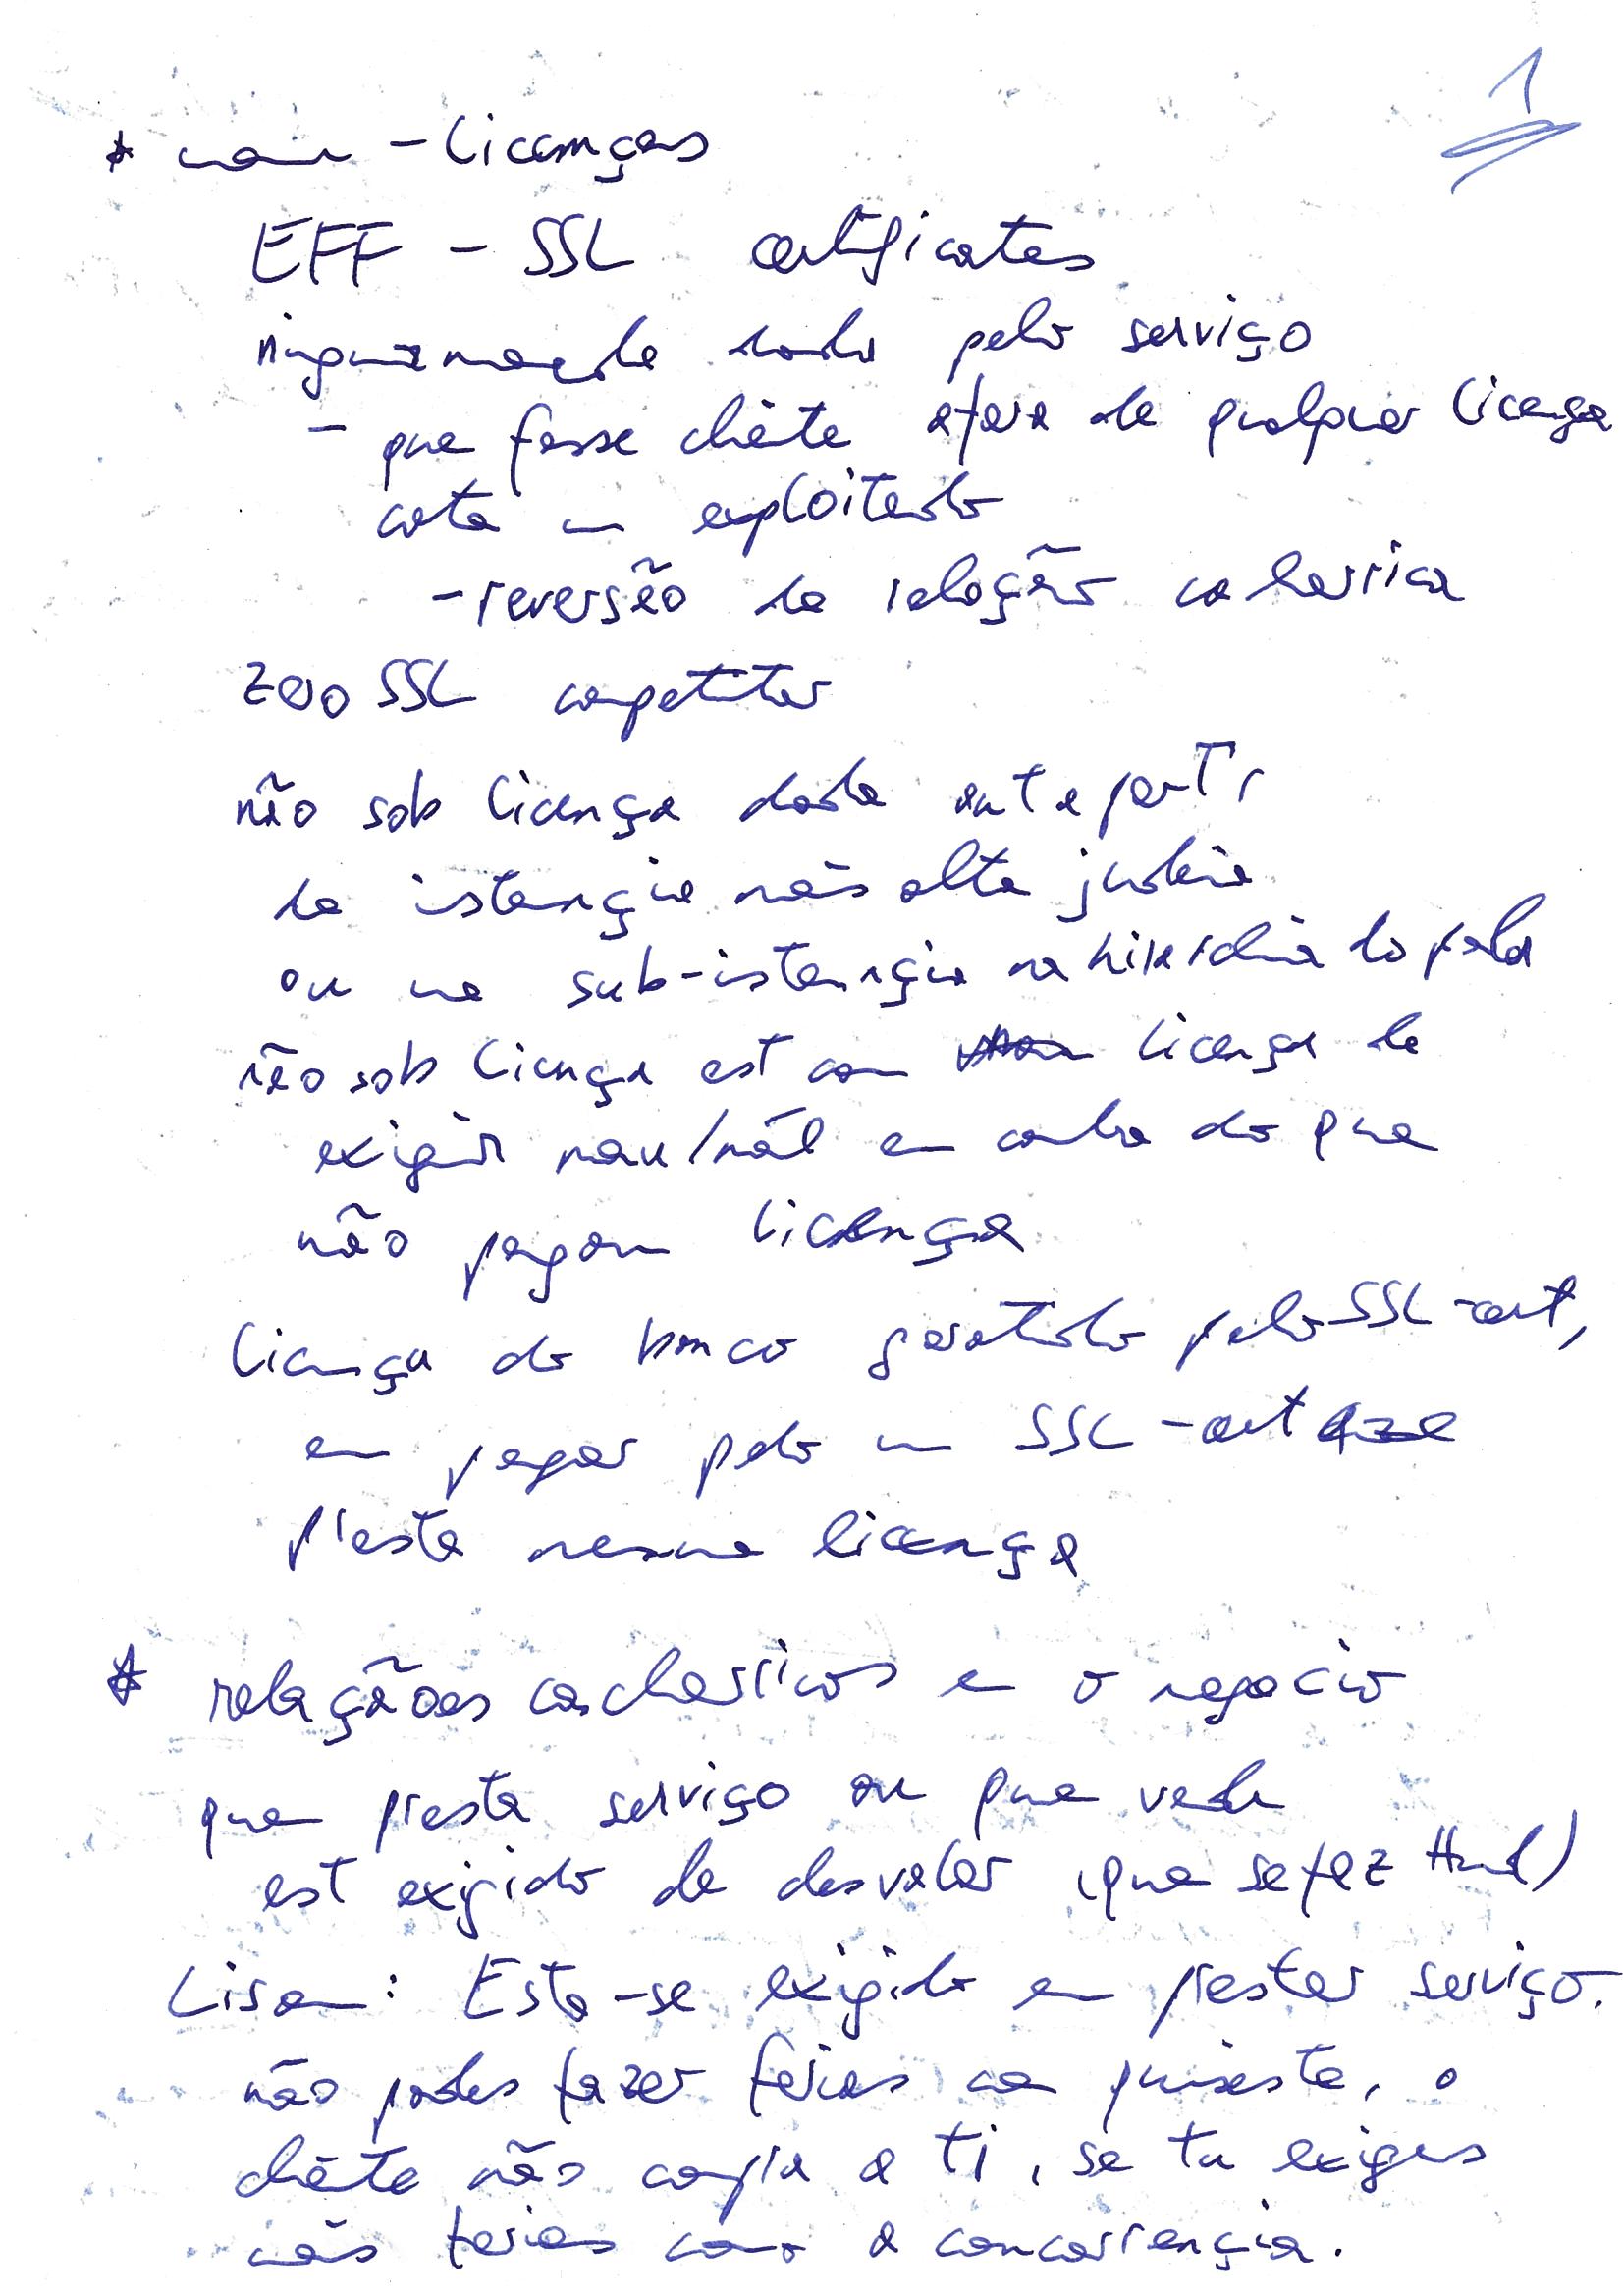 1
* nau - licenças
EFF - SSL certificates
pelo serviço
- que fosse cliēte afora de qualquer licença
cōta um exploitado
- reversão da relação cacherrica
Zero SSL competitor
não sob licença dada ant a partir
da istançia más alta judéia
ou na sub-istançia na do
não sob licença est com licença de
exigir nau/nāl em conta do que
não pagou licença
licença do banco garatido pelo SSL-cert,
em pagar pelo um SSL-cert
presta licença
* relaçãoes cacherricos em o negocio
que presta serviço ou que vede
est exigido de desvalor (que se fez)
Lison: Esta-se exigido em prestar serviço.
não podes fazer ferias quiseste, o
cliēte não confia a ti, se tu exiges
más ferias como a concorrençia.